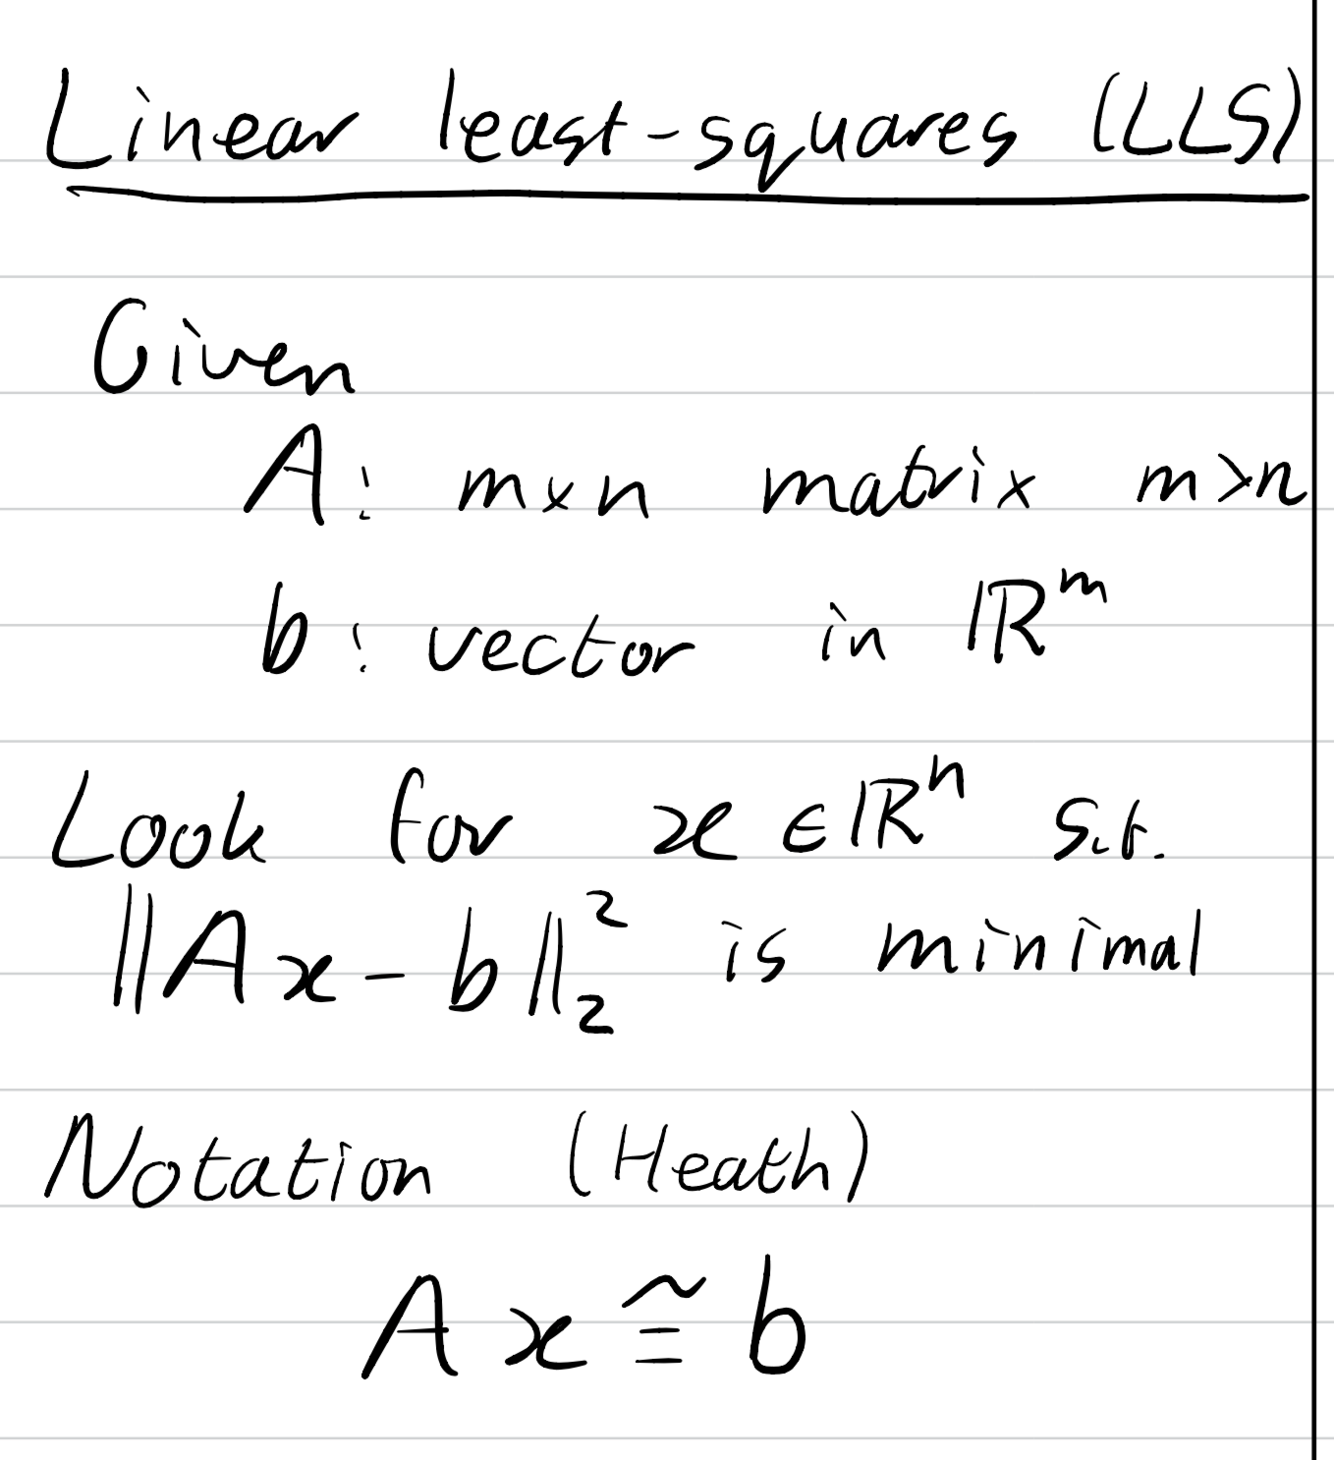 Linear least-squares (LLS)
Given
A: m×n matrix m>n
b: vector in ℝᵐ
Look for x ∈ ℝⁿ s.t.
||Ax - b||₂² is minimal
Notation (Heath)
Ax ≅ b